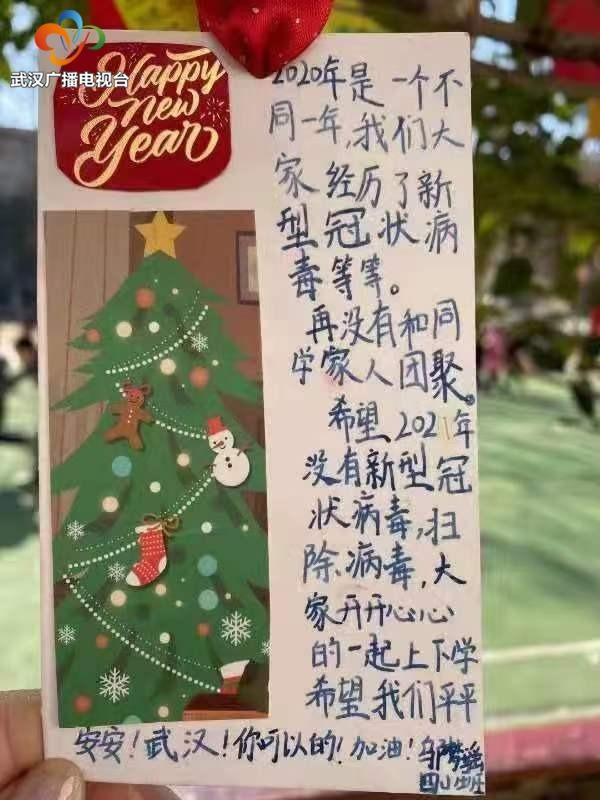 武汉广播电视台
Happy
New
Year
2020年是一个不
同一年,我们大
家经历了新
型冠状病
毒等等。
再没有和同
学家人团聚。
希望2021年
没有新型冠
状病毒,扫
除病毒,大
家开开心心
的一起上下学
希望我们平平
安安!武汉!你可以的!加油!邬梦瑶
四(1)班